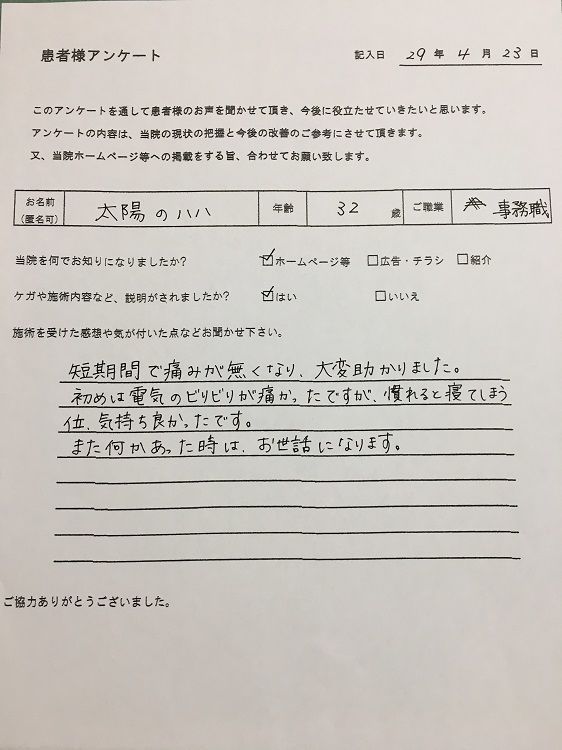 患者様アンケート
記入日 29 年 4 月 23 日
このアンケートを通して患者様のお声を聞かせて頂き、今後に役立たせていきたいと思います。
アンケートの内容は、当院の現状の把握と今後の改善のご参考にさせて頂きます。
又、当院ホームページ等への掲載をする旨、合わせてお願い致します。
お名前(匿名可) 太陽のハハ 年齢 32 歳 ご職業 事務職
当院を何でお知りになりましたか? ☑ホームページ等 □広告・チラシ □紹介
ケガや施術内容など、説明がされましたか? ☑はい □いいえ
施術を受けた感想や気が付いた点などお聞かせ下さい。
短期間で痛みが無くなり、大変助かりました。
初めは電気のビリビリが痛かったですが、慣れると寝てしまう
位、気持ち良かったです。
また何かあった時は、お世話になります。
ご協力ありがとうございました。